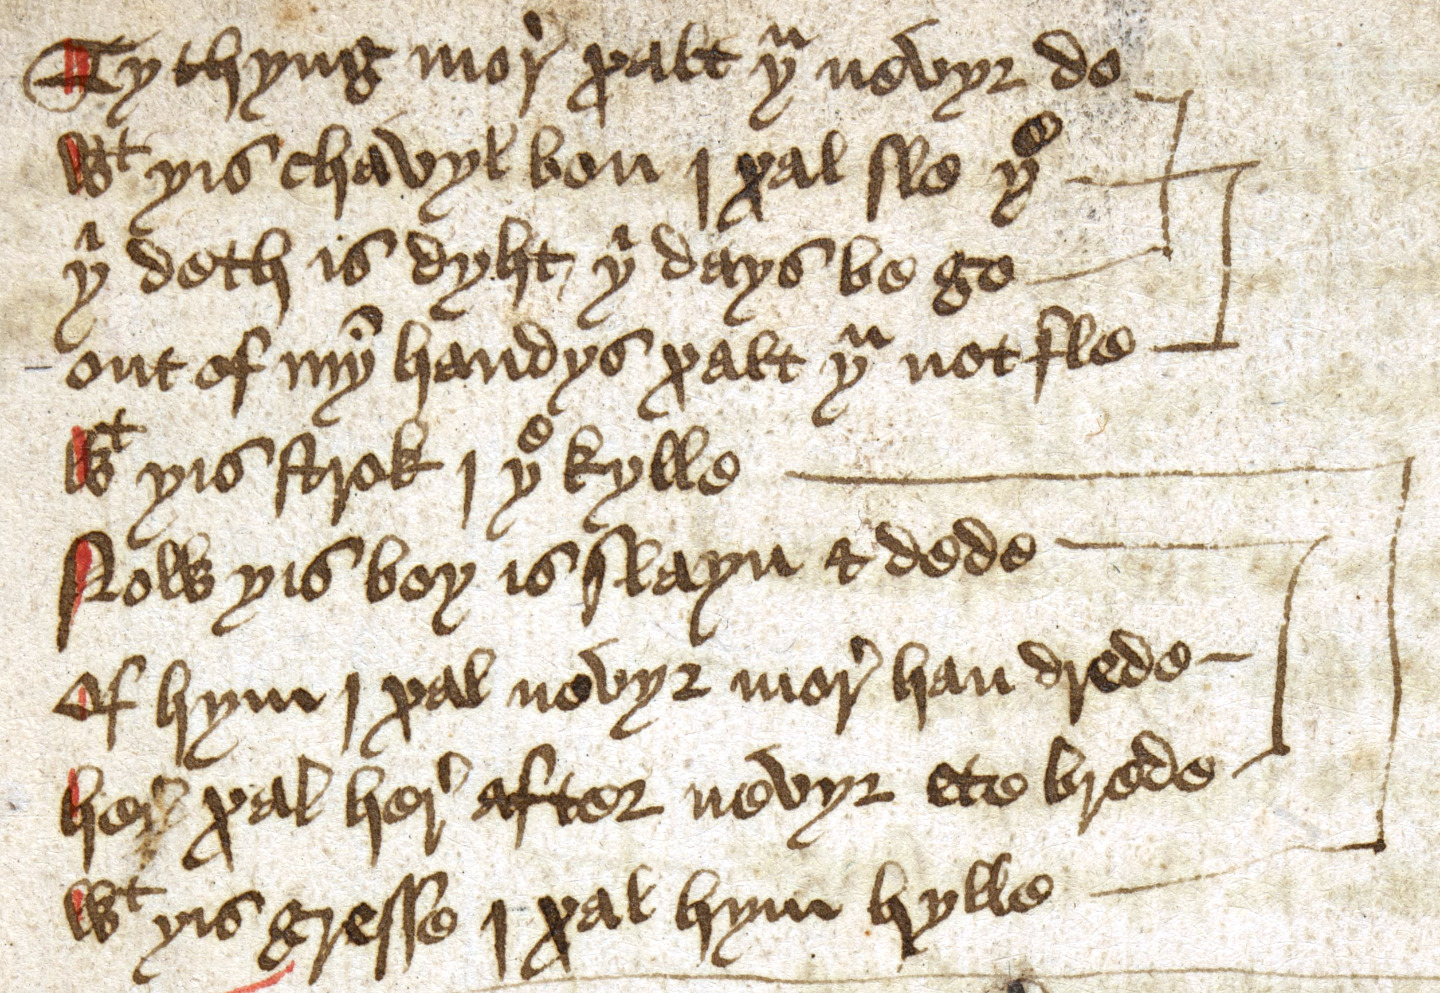 Tythyng mor' xalt yᵘ nevyr do
wᵗ yis chavyl bon I xal sle yᵉ
yⁱ deth is dyht yⁱ days be go
out of myn handys xalt yᵘ not fle
wᵗ yis strok I yᵉ kylle
Now yis boy is slayn & dede
Of hym I xal nevyr mor' han drede
her' xal her' after nevyr ete brede
wᵗ yis gresse I xal hym hylle